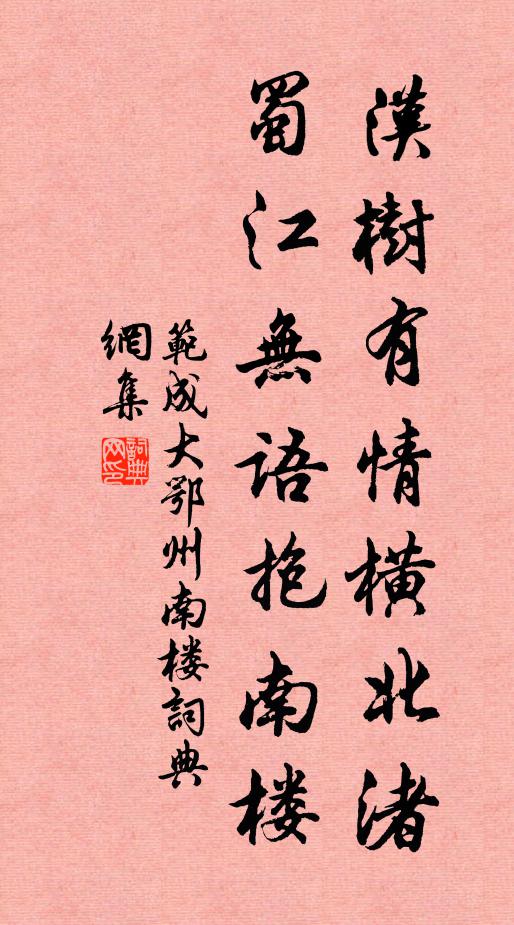 漢樹有情橫北渚
蜀江無語抱南楼
範成大鄂州南楼詞典
網集
詞典
网印